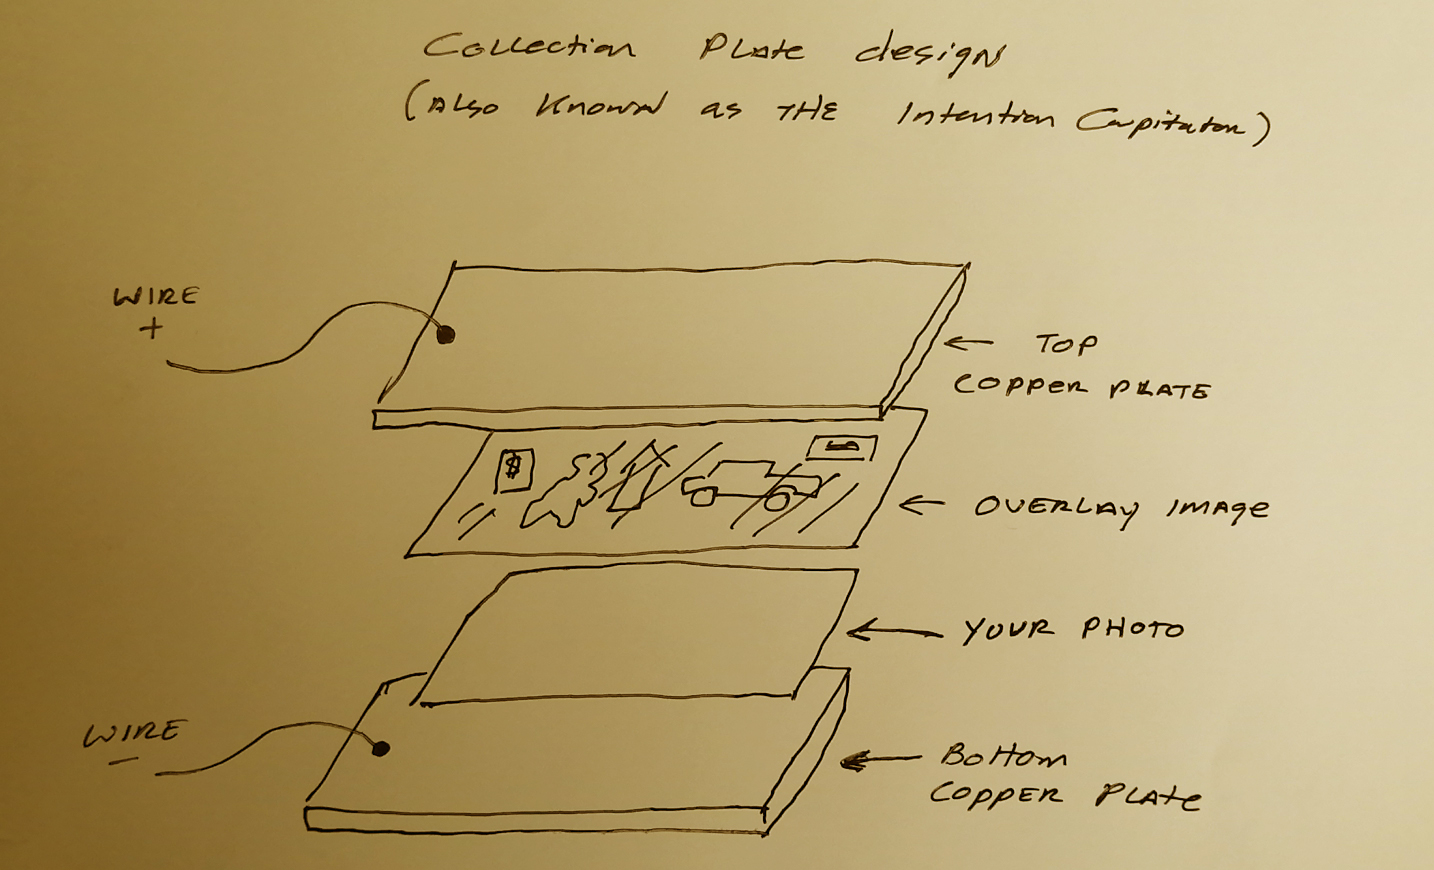 Collection Plate design
(Also Known as THE Intention Capitator)
WIRE
+
TOP
COPPER PLATE
$
OVERLAY IMAGE
YOUR PHOTO
WIRE
-
Bottom
COPPER Plate